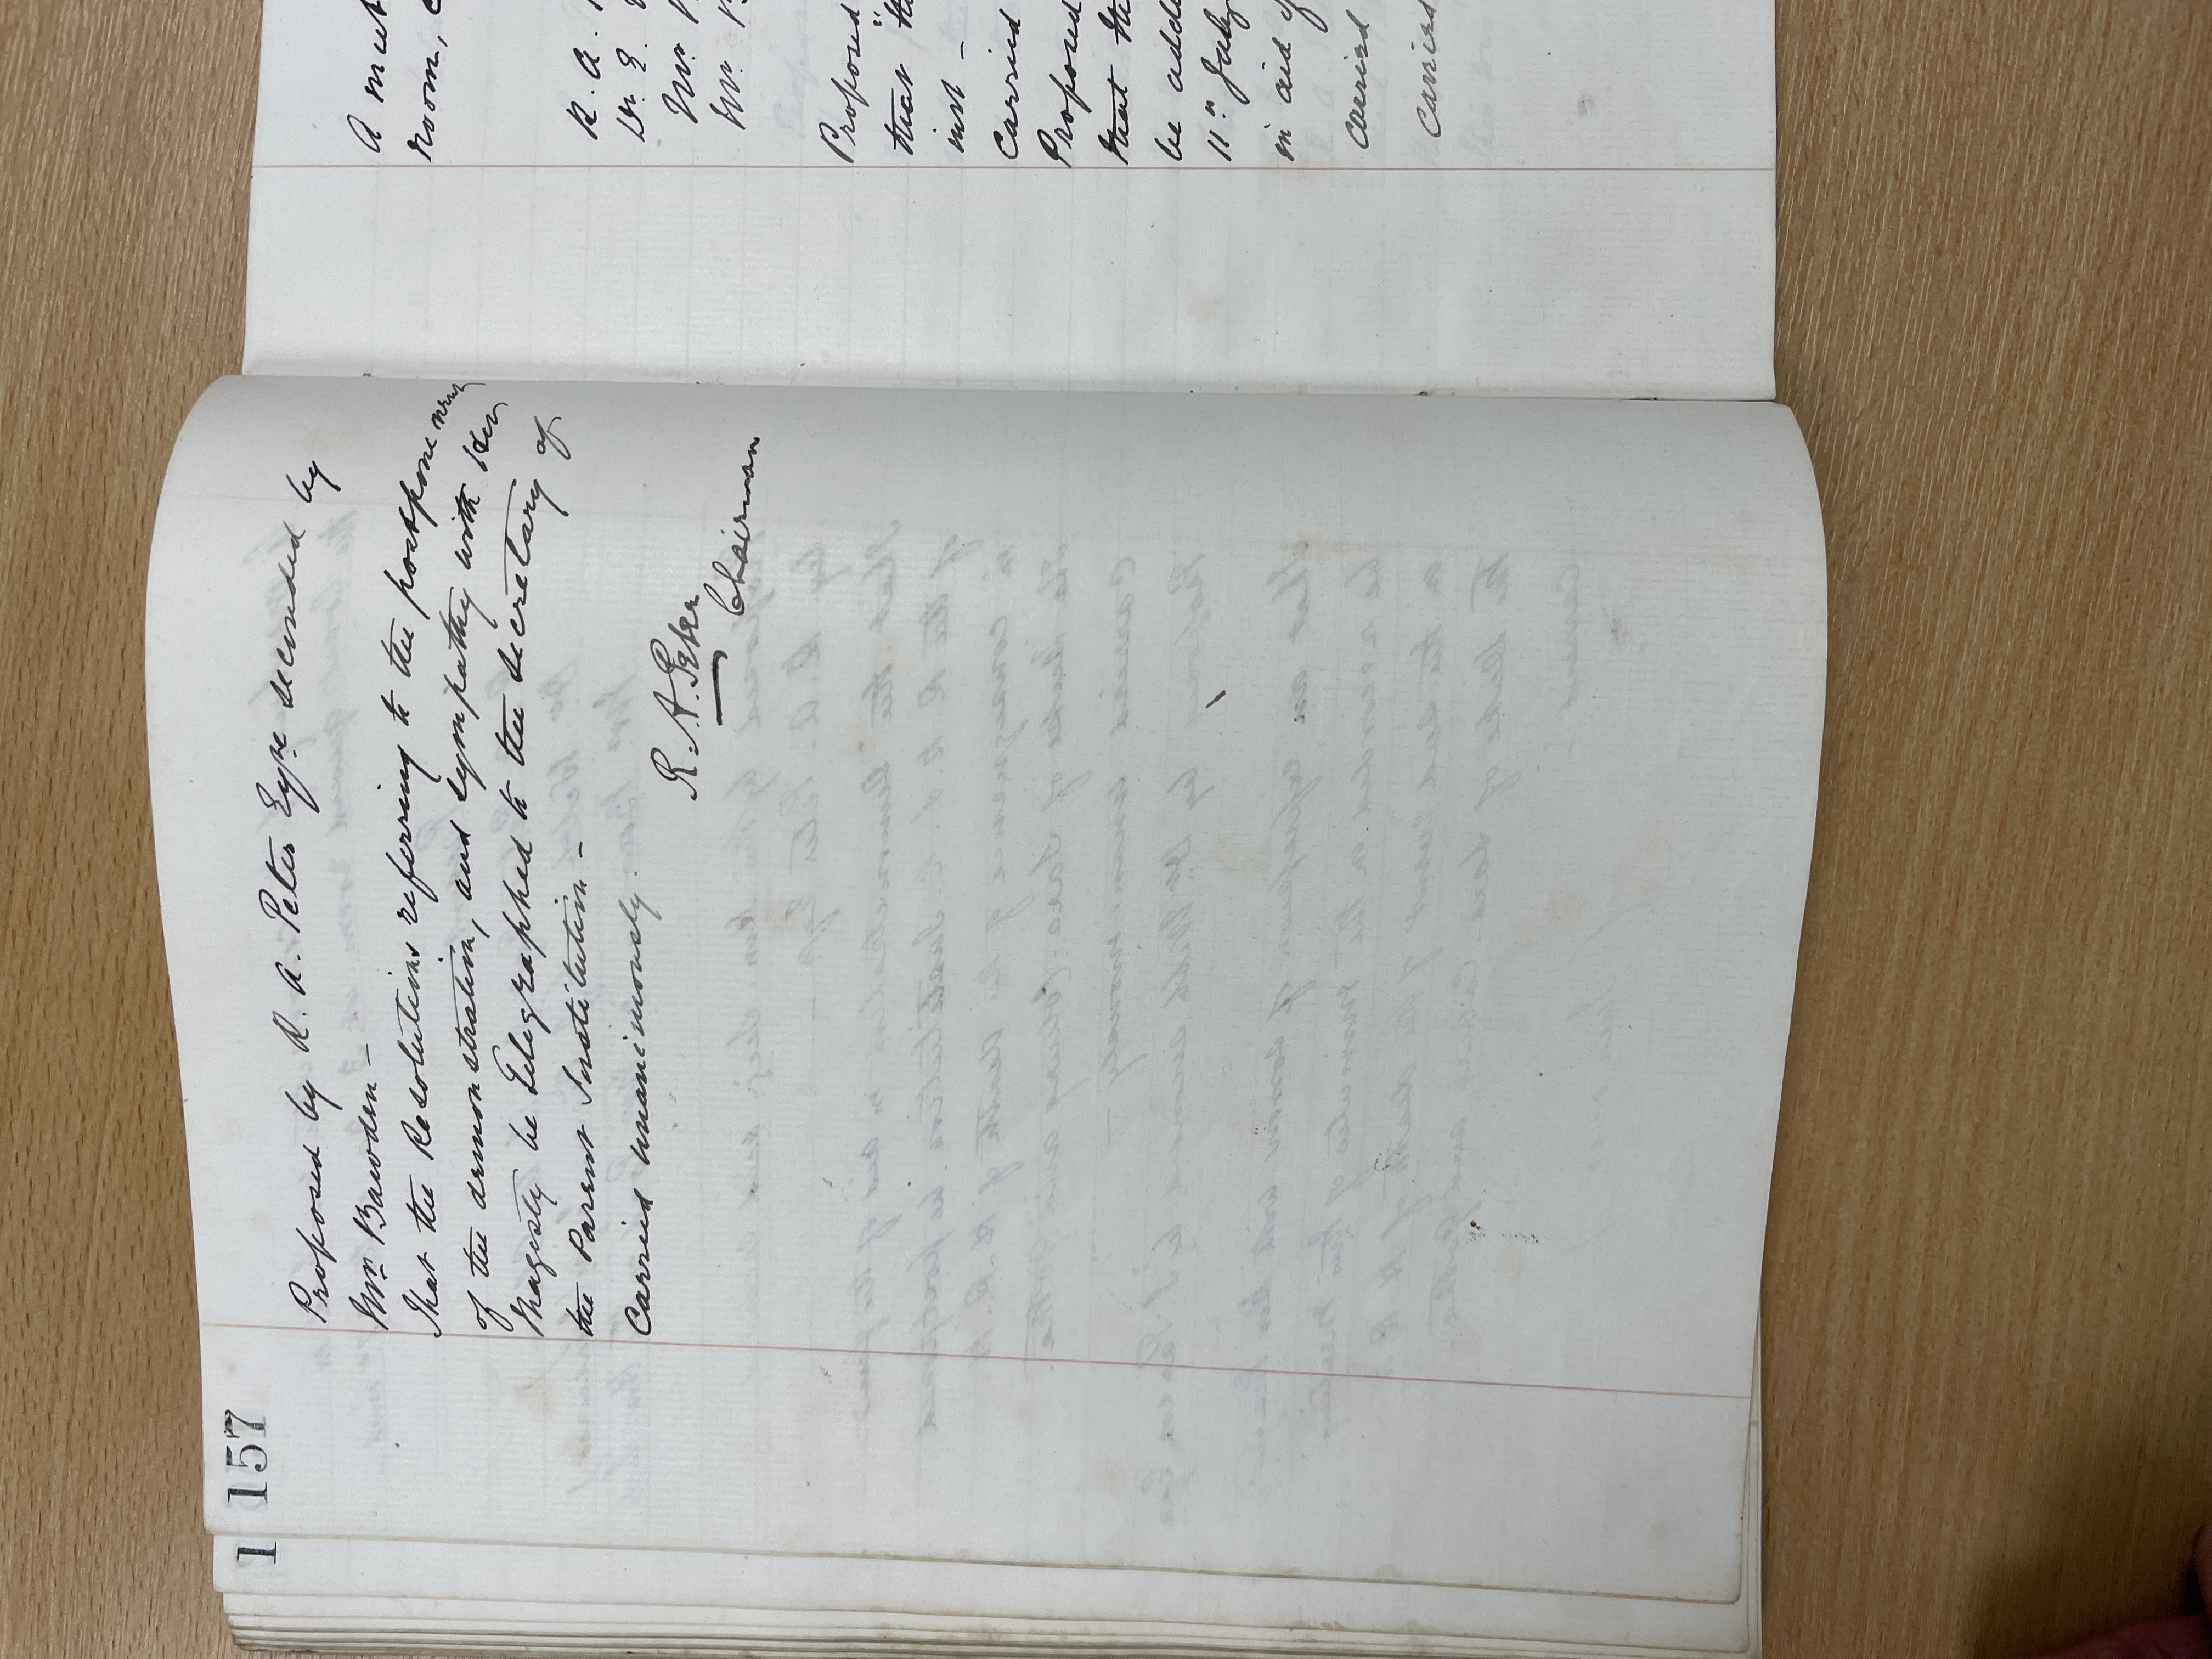 157
Proposed by R. A. Peter Esqre seconded by
Mr. Bawden –
That the Resolutions referring to the postponement
of the demonstration, and sympathy with Her
Magesty be Telegraphed to the secretary of
the Parent Institution –
Carried unanimously.
R. A. Peter
Chairman
1
A meet
room,
R. A.
Dr. E.
Mr.
Mr.
Proposed
that the
inst –
Carried
Proposed
that the
be adde
11th July
in aid of
Carried
Carried